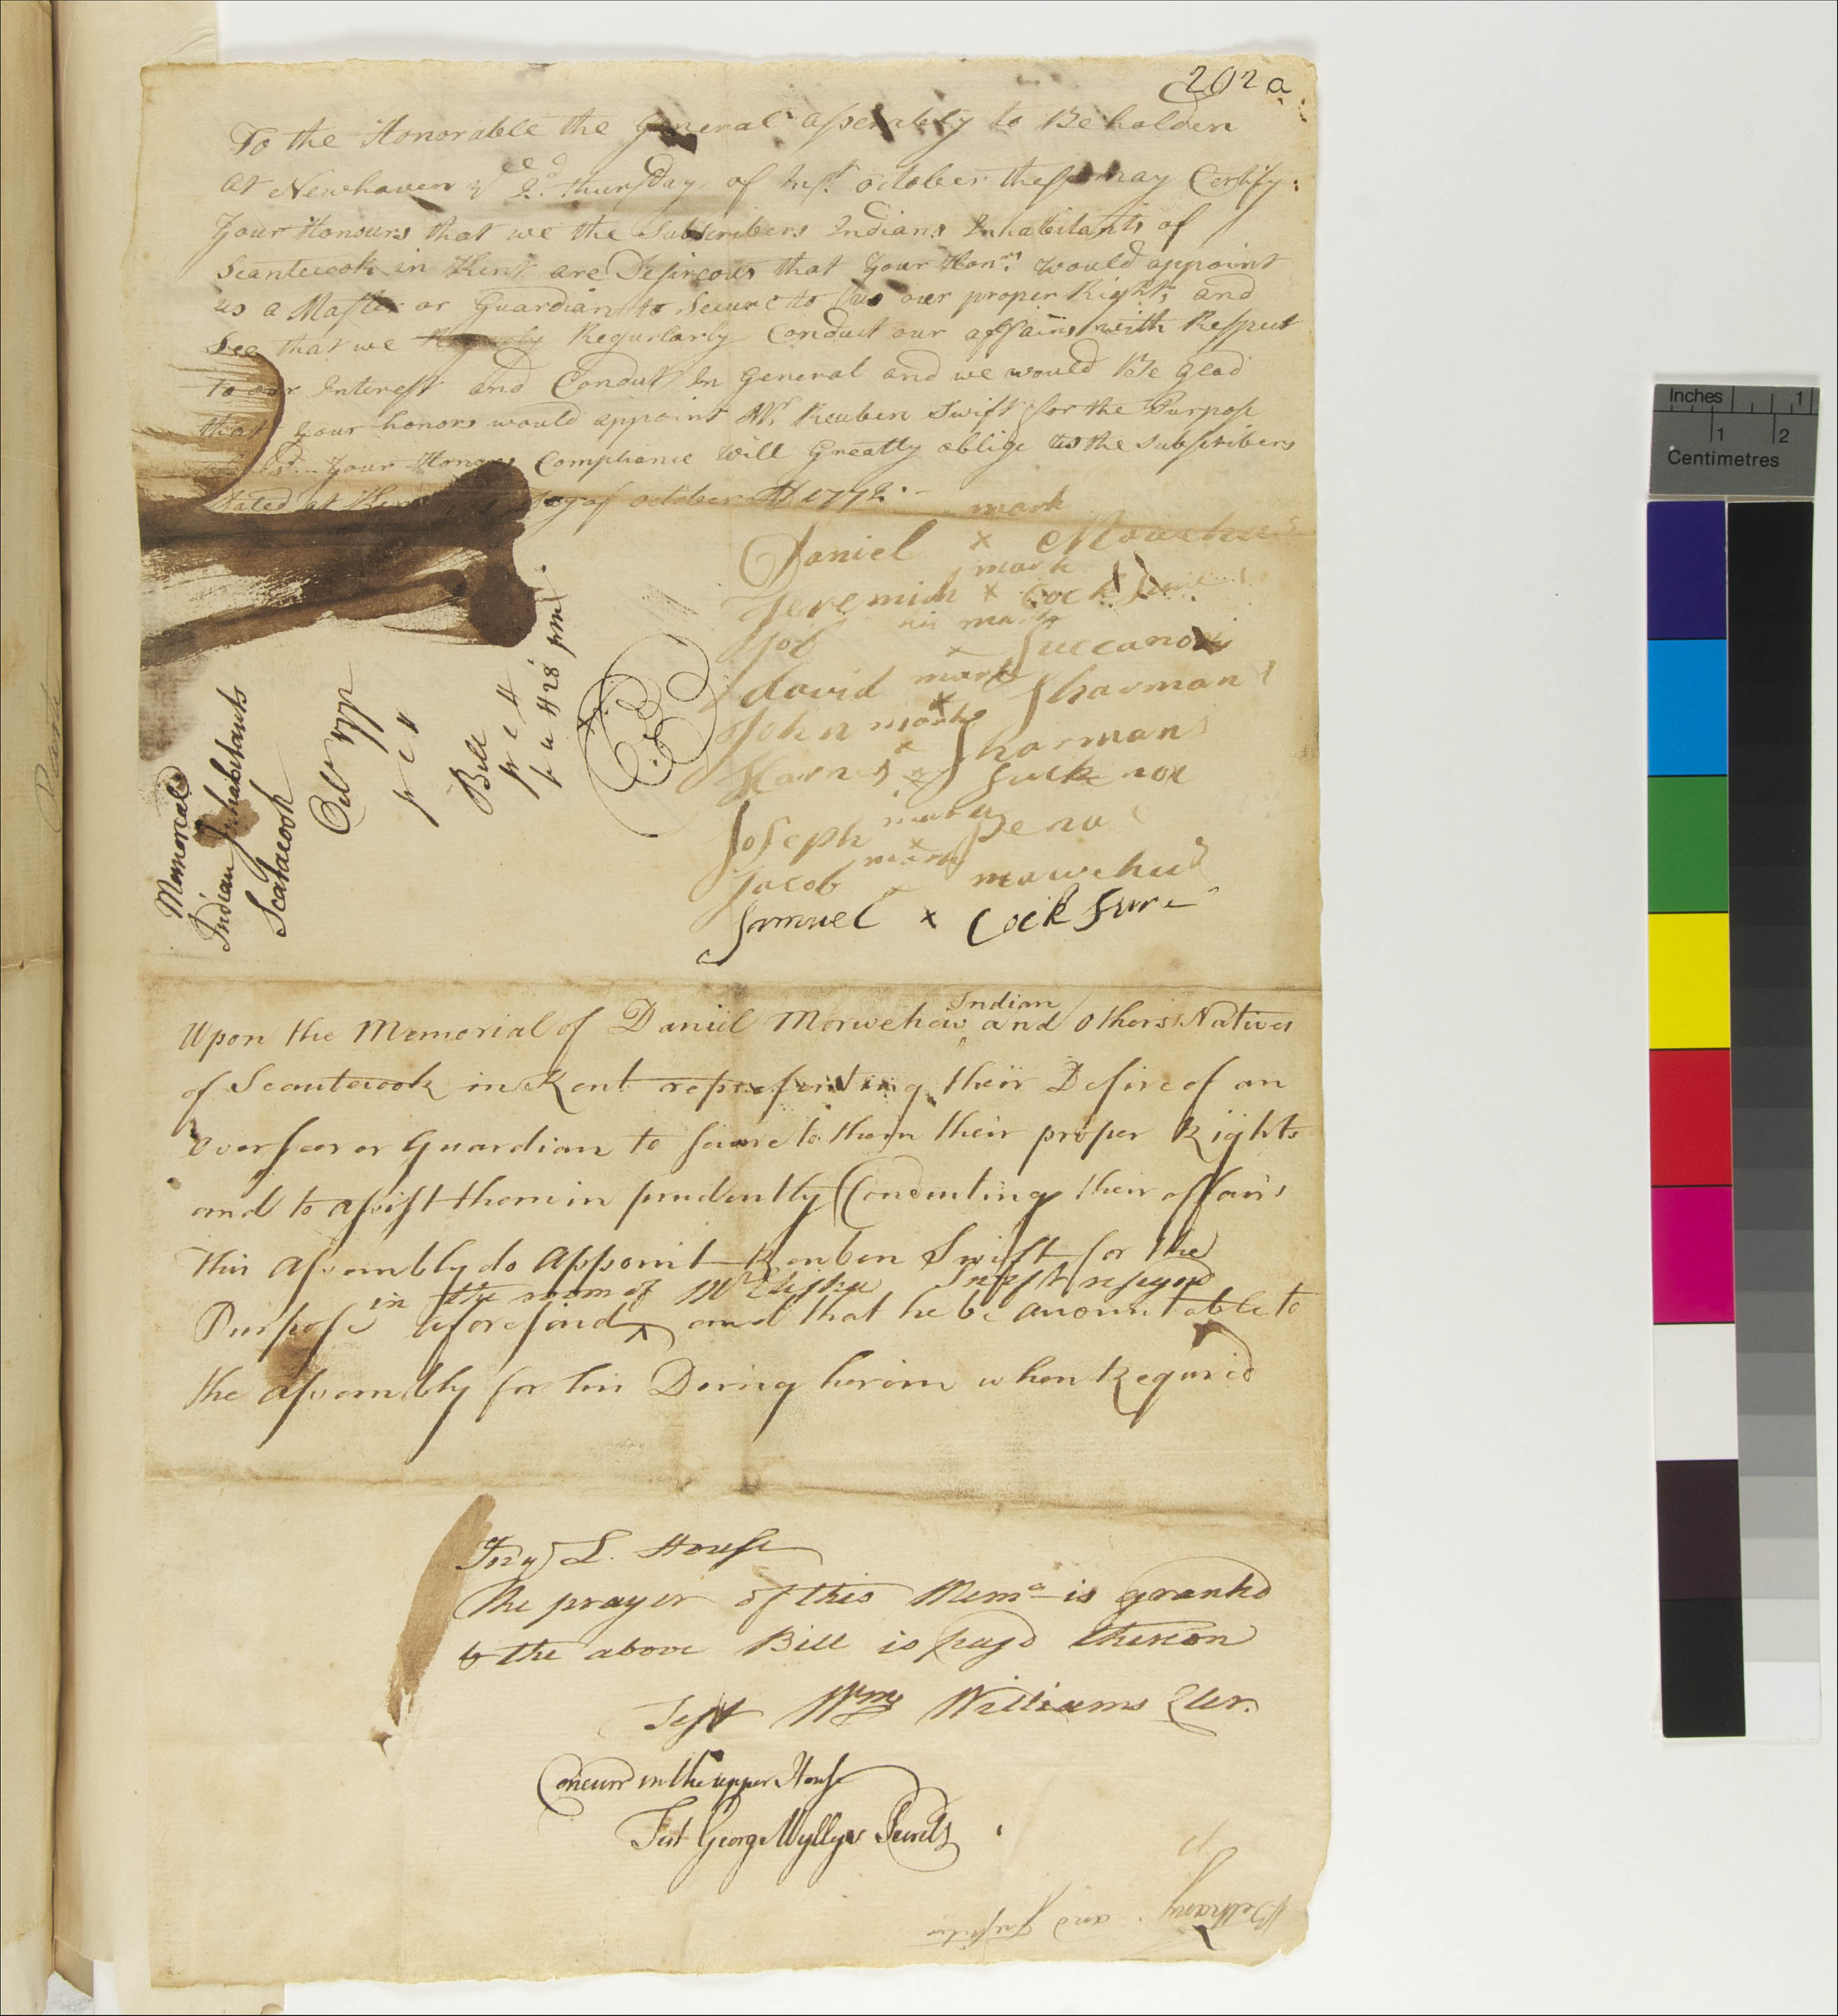 202 a
To the Honorable the General assembly to Be holden
at Newhaven ye 2d thursday of Inst october these may Certify
Your Honours that we the Subscribers Indians Inhabitants of
Scantecook in Kent are Desireous that Your Honrs would appoint
us a Master or Guardian to Secure to us our proper Rights and
See that we Regurlarly Conduct our affairs with Respect
to our Interest and Conduct In General and we would Be Glad
that your honors would appoint Mr Reuben Swift for the Purpose
Your Honors Compliance Will Greatly oblige us the Subscribers
Dated at Kent Day of october AD 1772
mark
Daniel x Mawehu
mark
Jeremiah x Cock Sure
his mark
Job x Succanox
david mark x Sharman
John mark x Sharman
Harnis x Suck nox
Joseph mark x Peno
Jacob mark x mawehu
Samuel x Cock Sure
Memorial
Indian Inhabitants
Scatacook
Octr 1772
pr c 4
Bill
pr c 4
p u H 28 pm
Upon the Memorial of Daniel Morwehew Indian and others Natives
of Scantecook in Kent representing their Desire of an
overseer or Guardian to secure to them their proper Rights
and to assist them in prudently Conducting their affairs
this Assembly do Appoint Reuben Swift for the
in the room of Mr Elisha Swift resigned
Purpose aforesaid ^ and that he be accountable to
the assembly for his Doing herein when Required
In ye L. House
The prayer of this Memo is granted
& the above Bill is passd thereon
Test Wm Williams Cler.
Concurrd in the upper House
Test George Wyllys Secrety
Bethany and